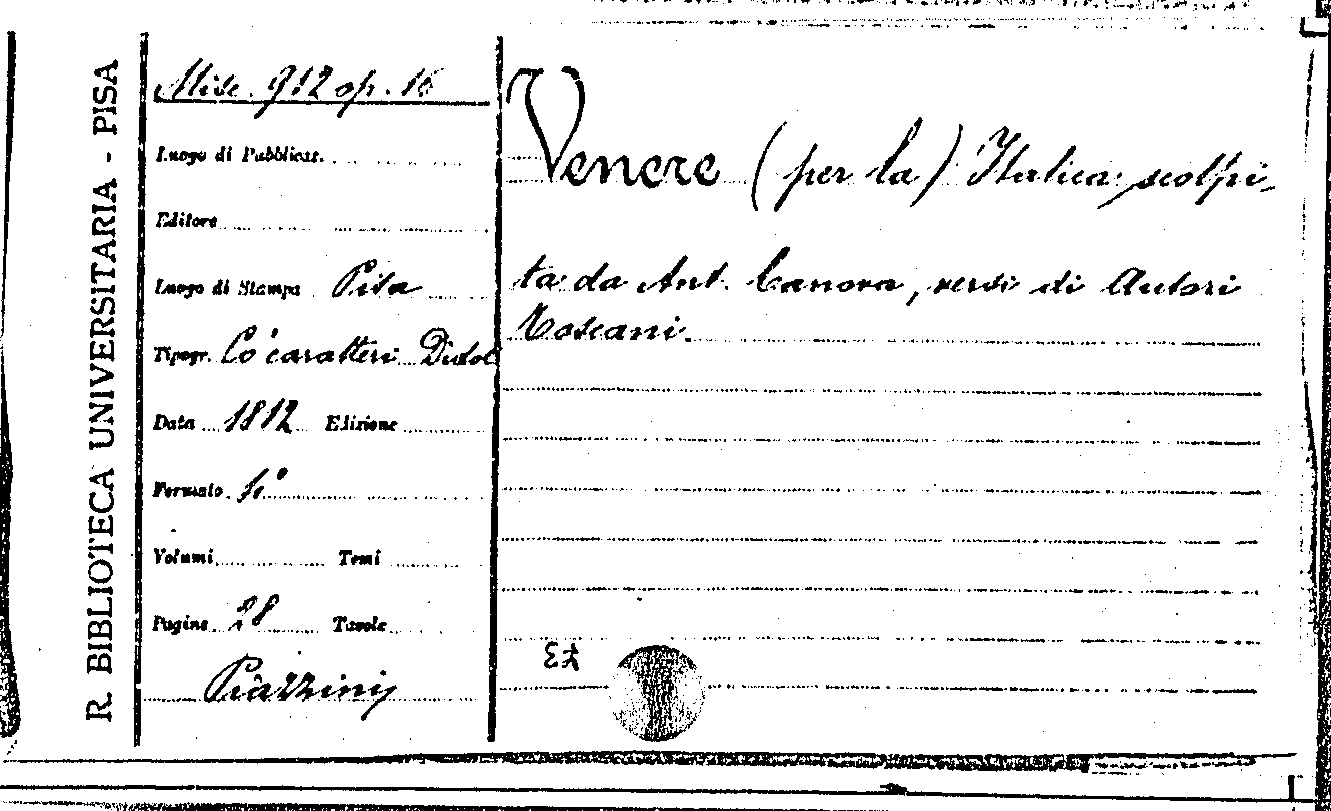 R. BIBLIOTECA UNIVERSITARIA - PISA
Misc. 912 op. 16
Luogo di Pubblicaz.
Editore
Luogo di Stampa Pisa
Tipogr. Co' caratteri Didot
Data 1812 Edizione
Formato 4°
Volumi Tomi
Pagine 28 Tavole
Piazzini
Venere (per la) Italica scolpi-
ta da Ant. Canova, versi di Autori
Toscani.